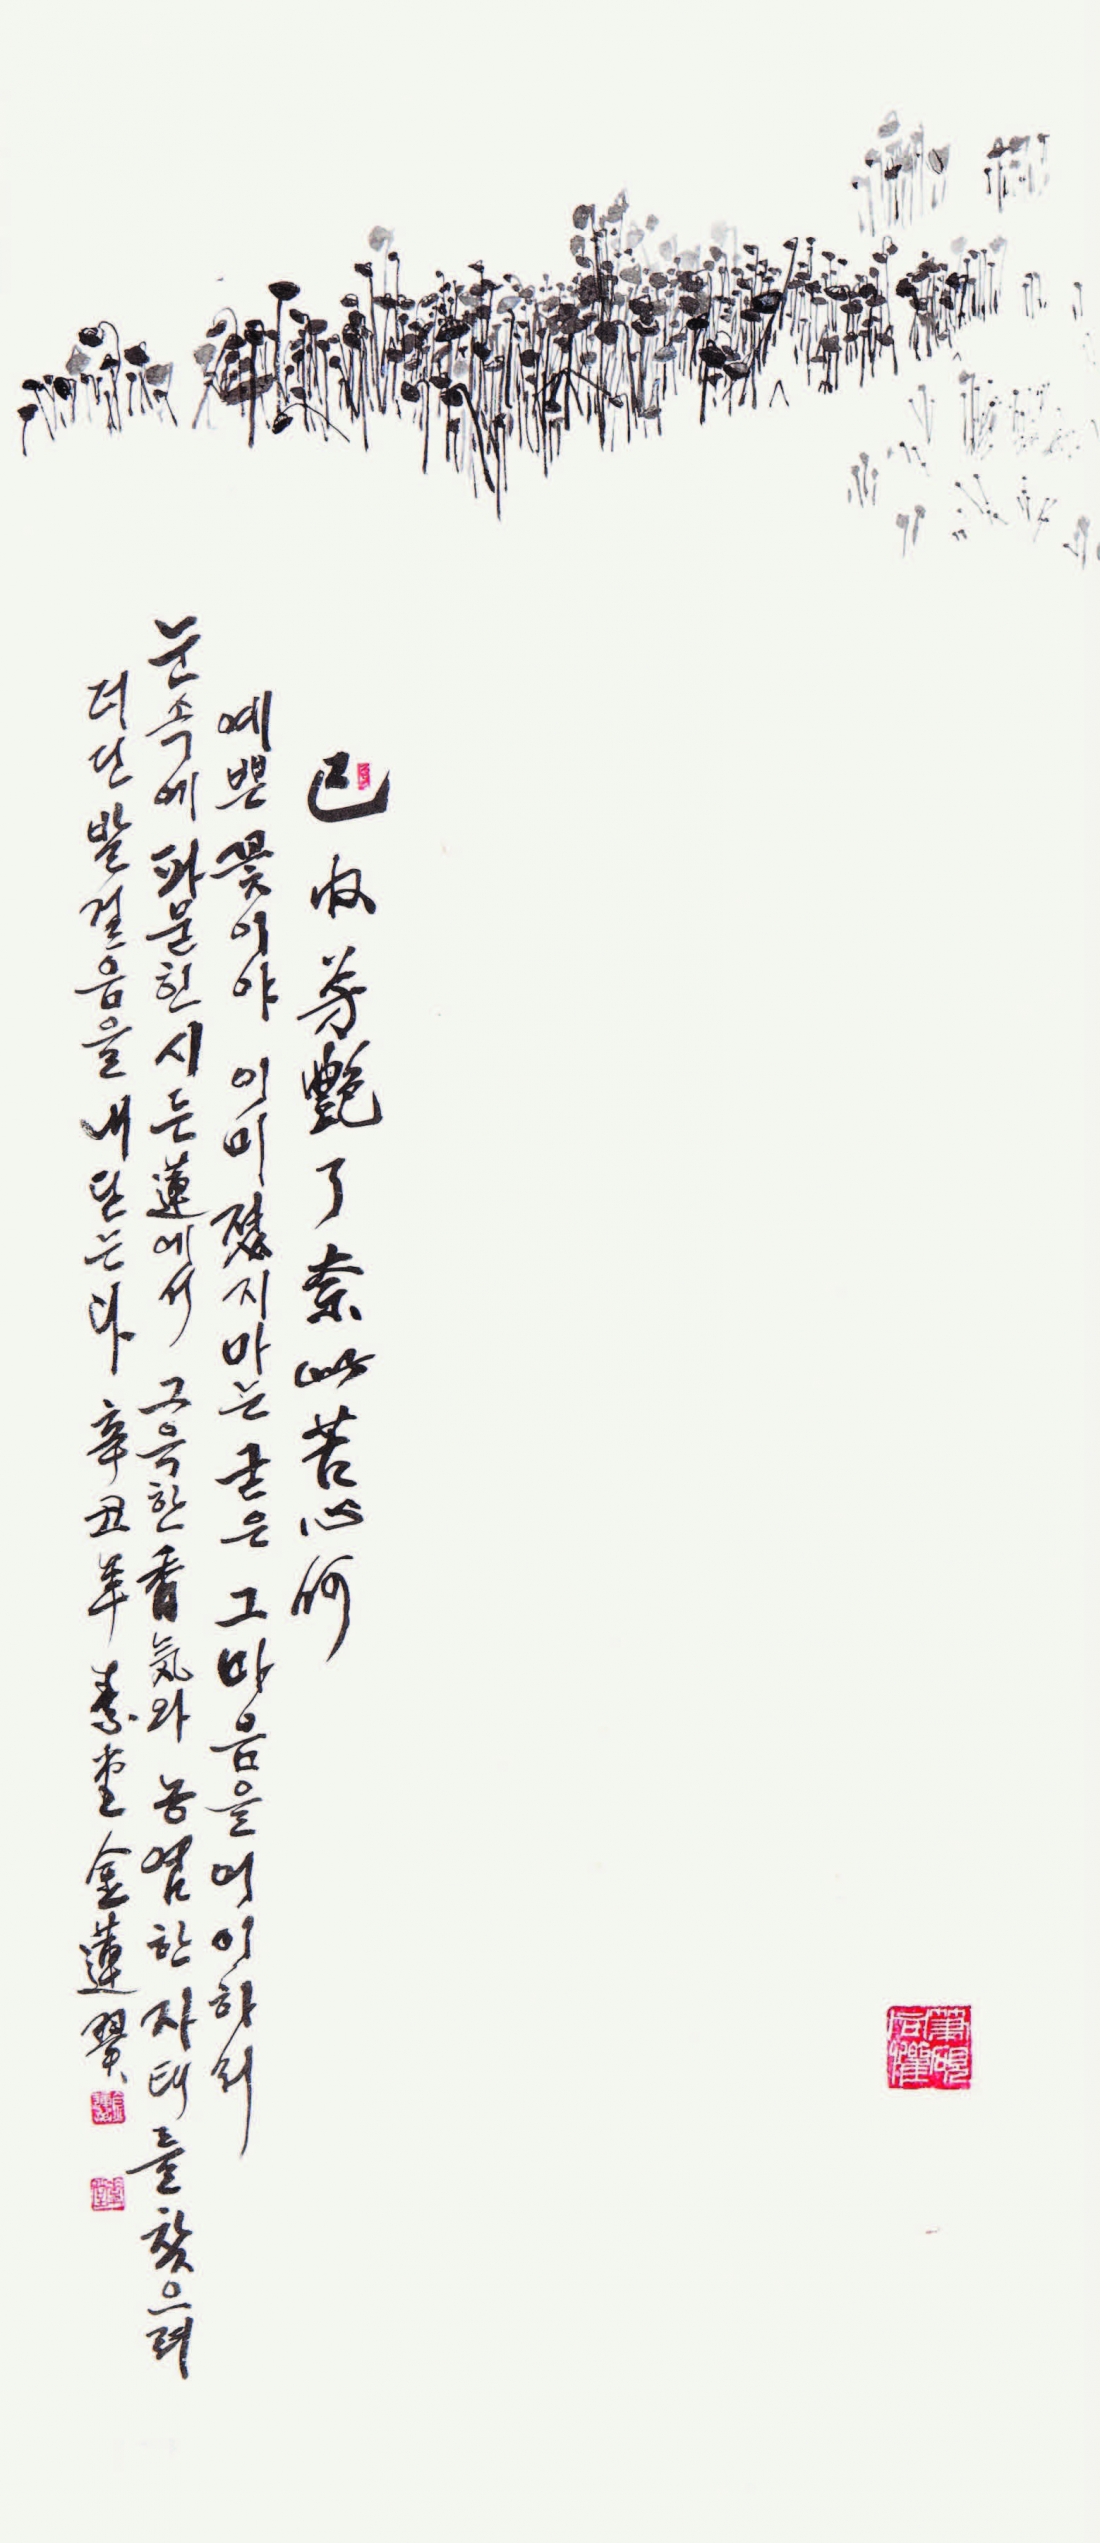 已收芳艶了奈此苦心何
예쁜 꽃이야 이미 졌지마는 굳은 그 마음을 어이하리
눈 속에 파묻힌 시든 蓮에서 그윽한 香氣와 농염한 자태를 찾으려
더딘 발걸음을 내딛는다 辛丑年 素堂 金蓮翼